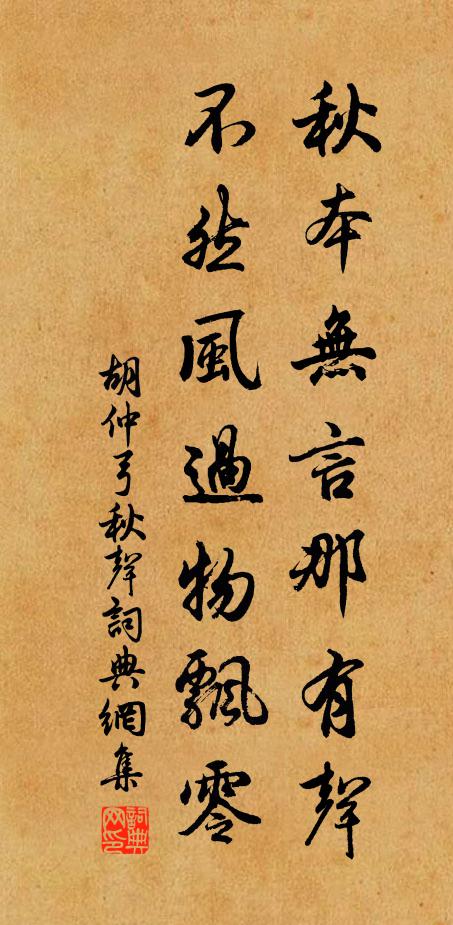 秋本無言那有聲
不然風過物飄零
胡仲弓秋聲詞典網集
詞典网印